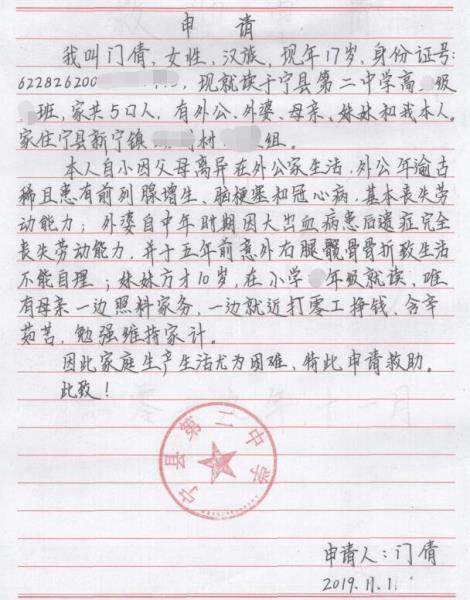 申请
我叫门倩，女性，汉族，现年17岁，身份证号：
622826200 ，现就读于宁县第二中学高 级
班，家共5口人，有外公、外婆、母亲、妹妹和我本人。
家住宁县新宁镇 村 组。
本人自小因父母离异在外公家生活，外公年逾古
稀且患有前列腺增生、脑梗塞和冠心病，基本丧失劳
动能力；外婆自中年时期因大出血病患后遗症完全
丧失劳动能力，并十五年前意外右腿髋骨骨折致生活
不能自理；妹妹方才10岁，在小学 年级就读，唯
有母亲一边照料家务，一边就近打零工挣钱、含辛
茹苦，勉强维持家计。
因此家庭生产生活尤为困难，特此申请救助。
此致！
宁县第二中学
申请人：门倩
2019.11.1